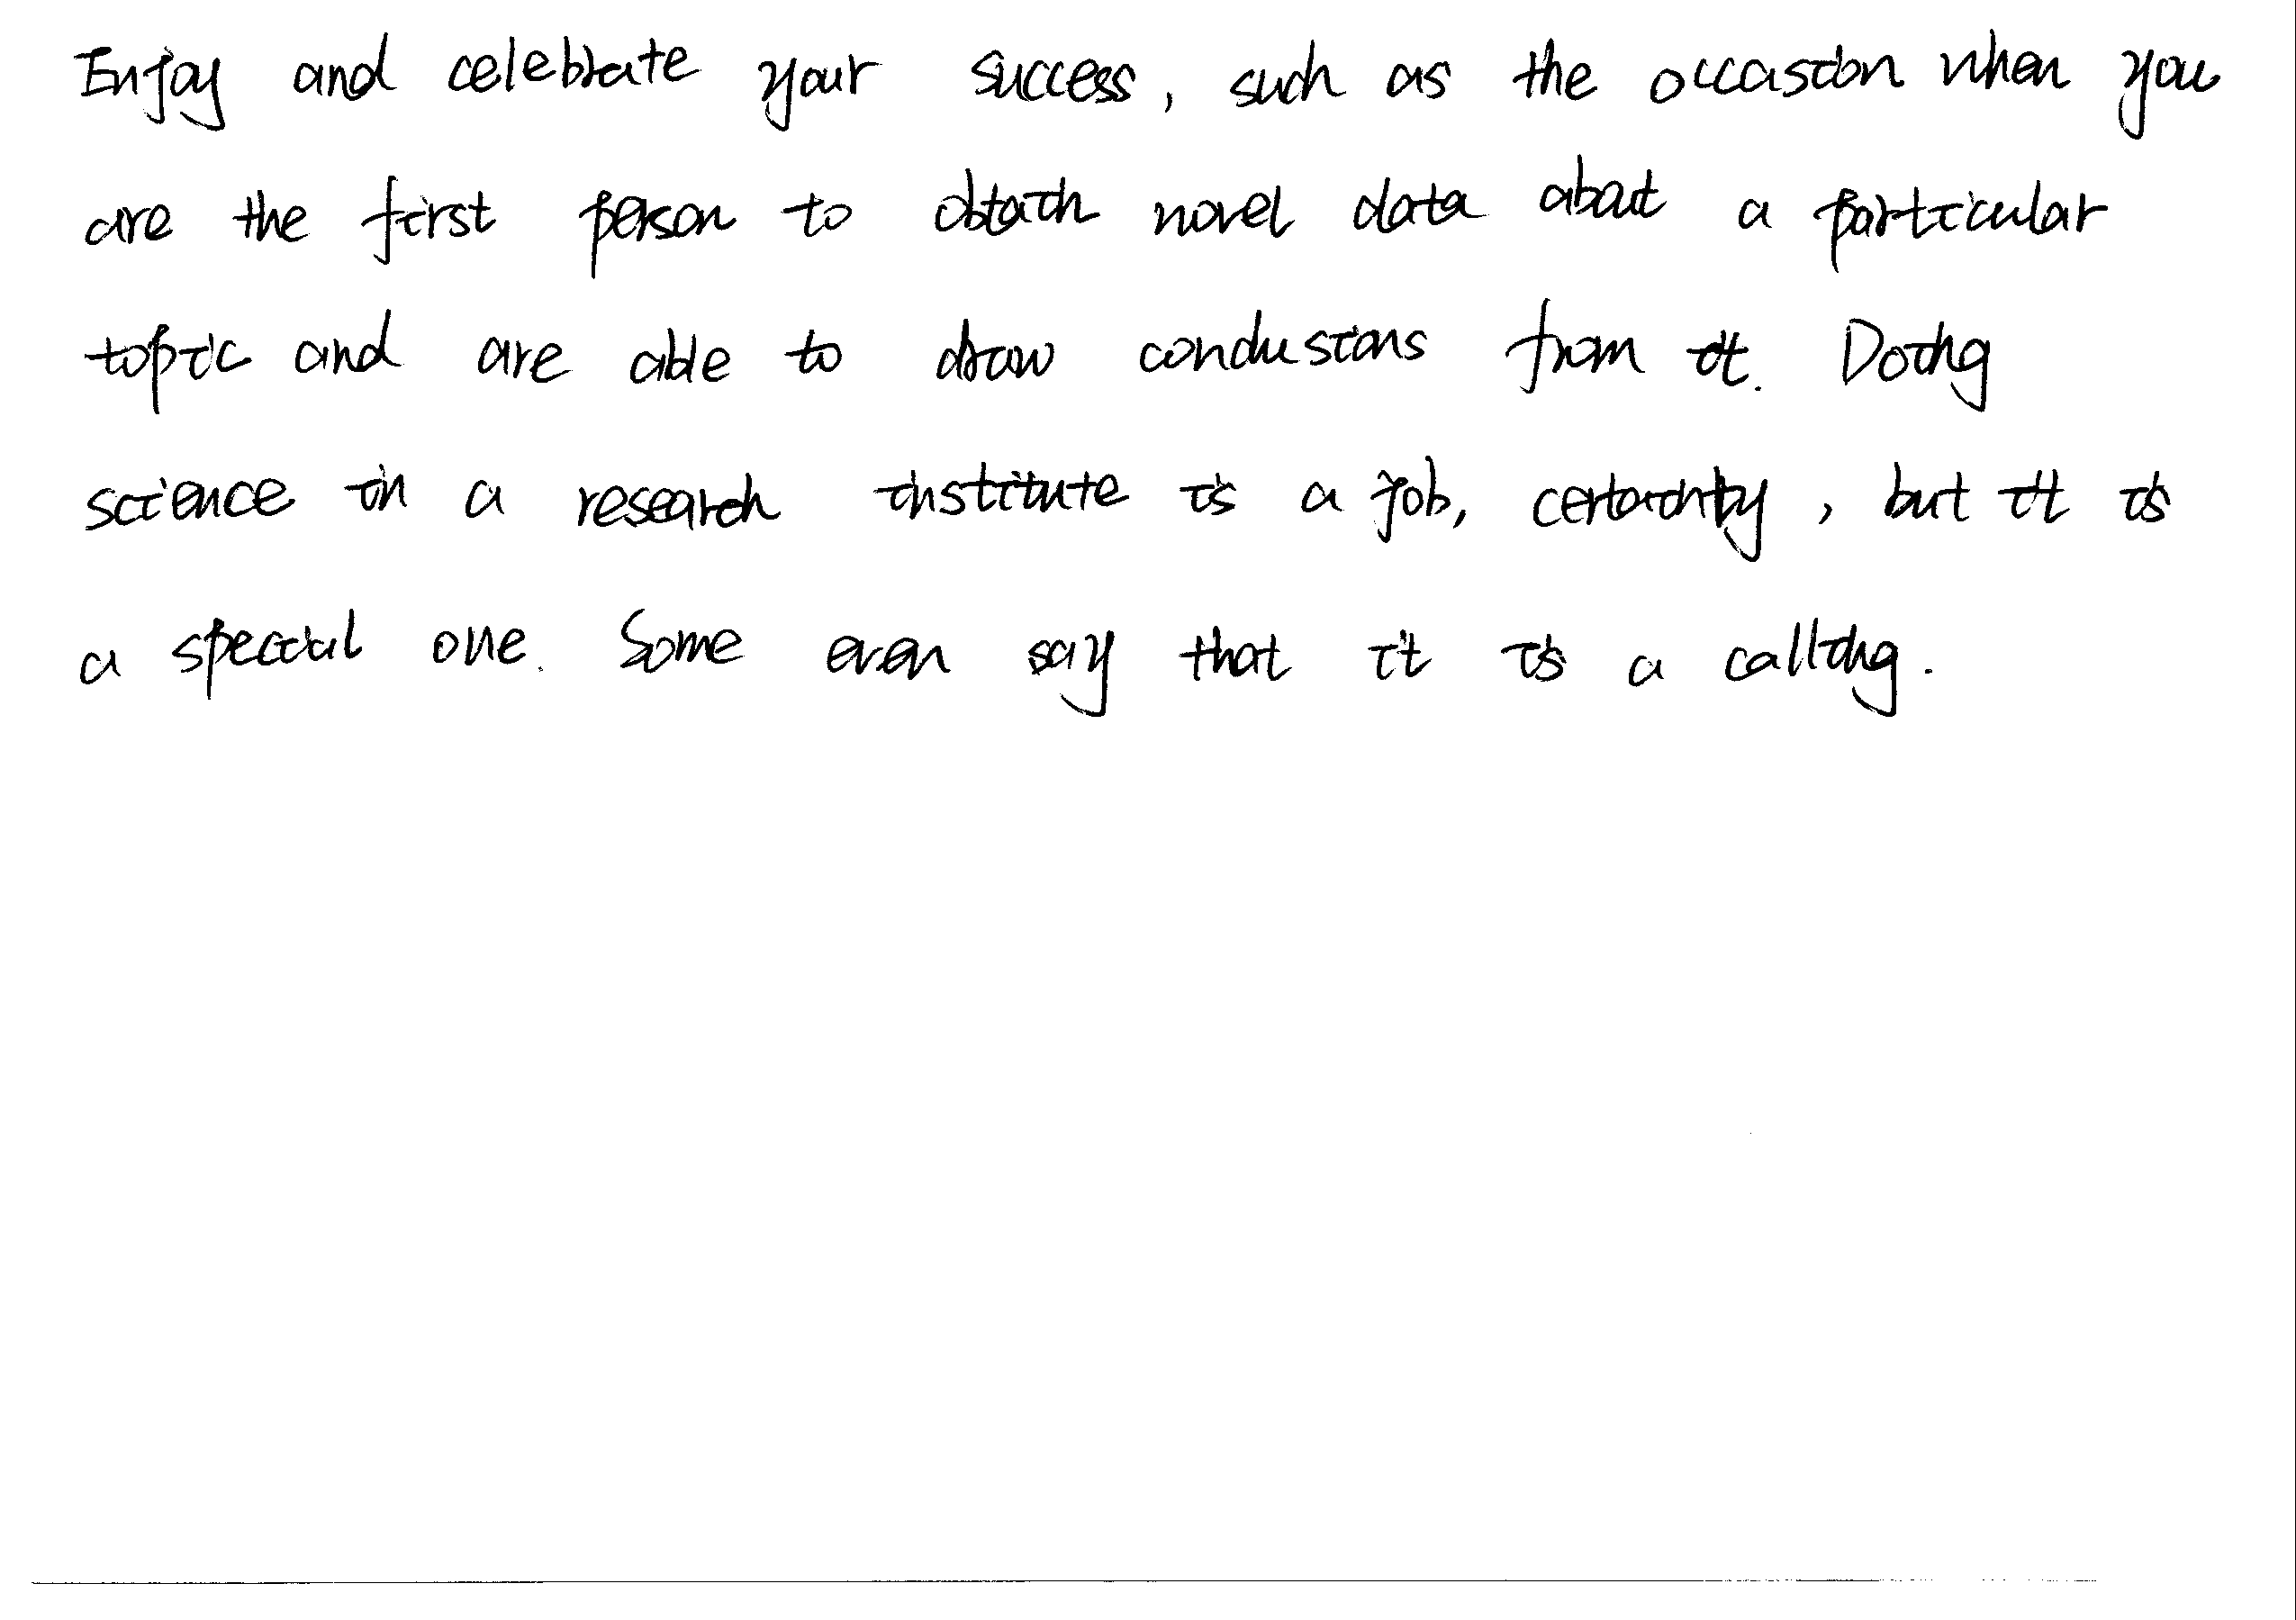 Enjoy and celebrate your success, such as the occasion when you
are the first person to obtain novel data about a particular
topic and are able to draw conclusions from it. Doing
science in a research institute is a job, certainty, but it is
a special one. Some even say that it is a calling.